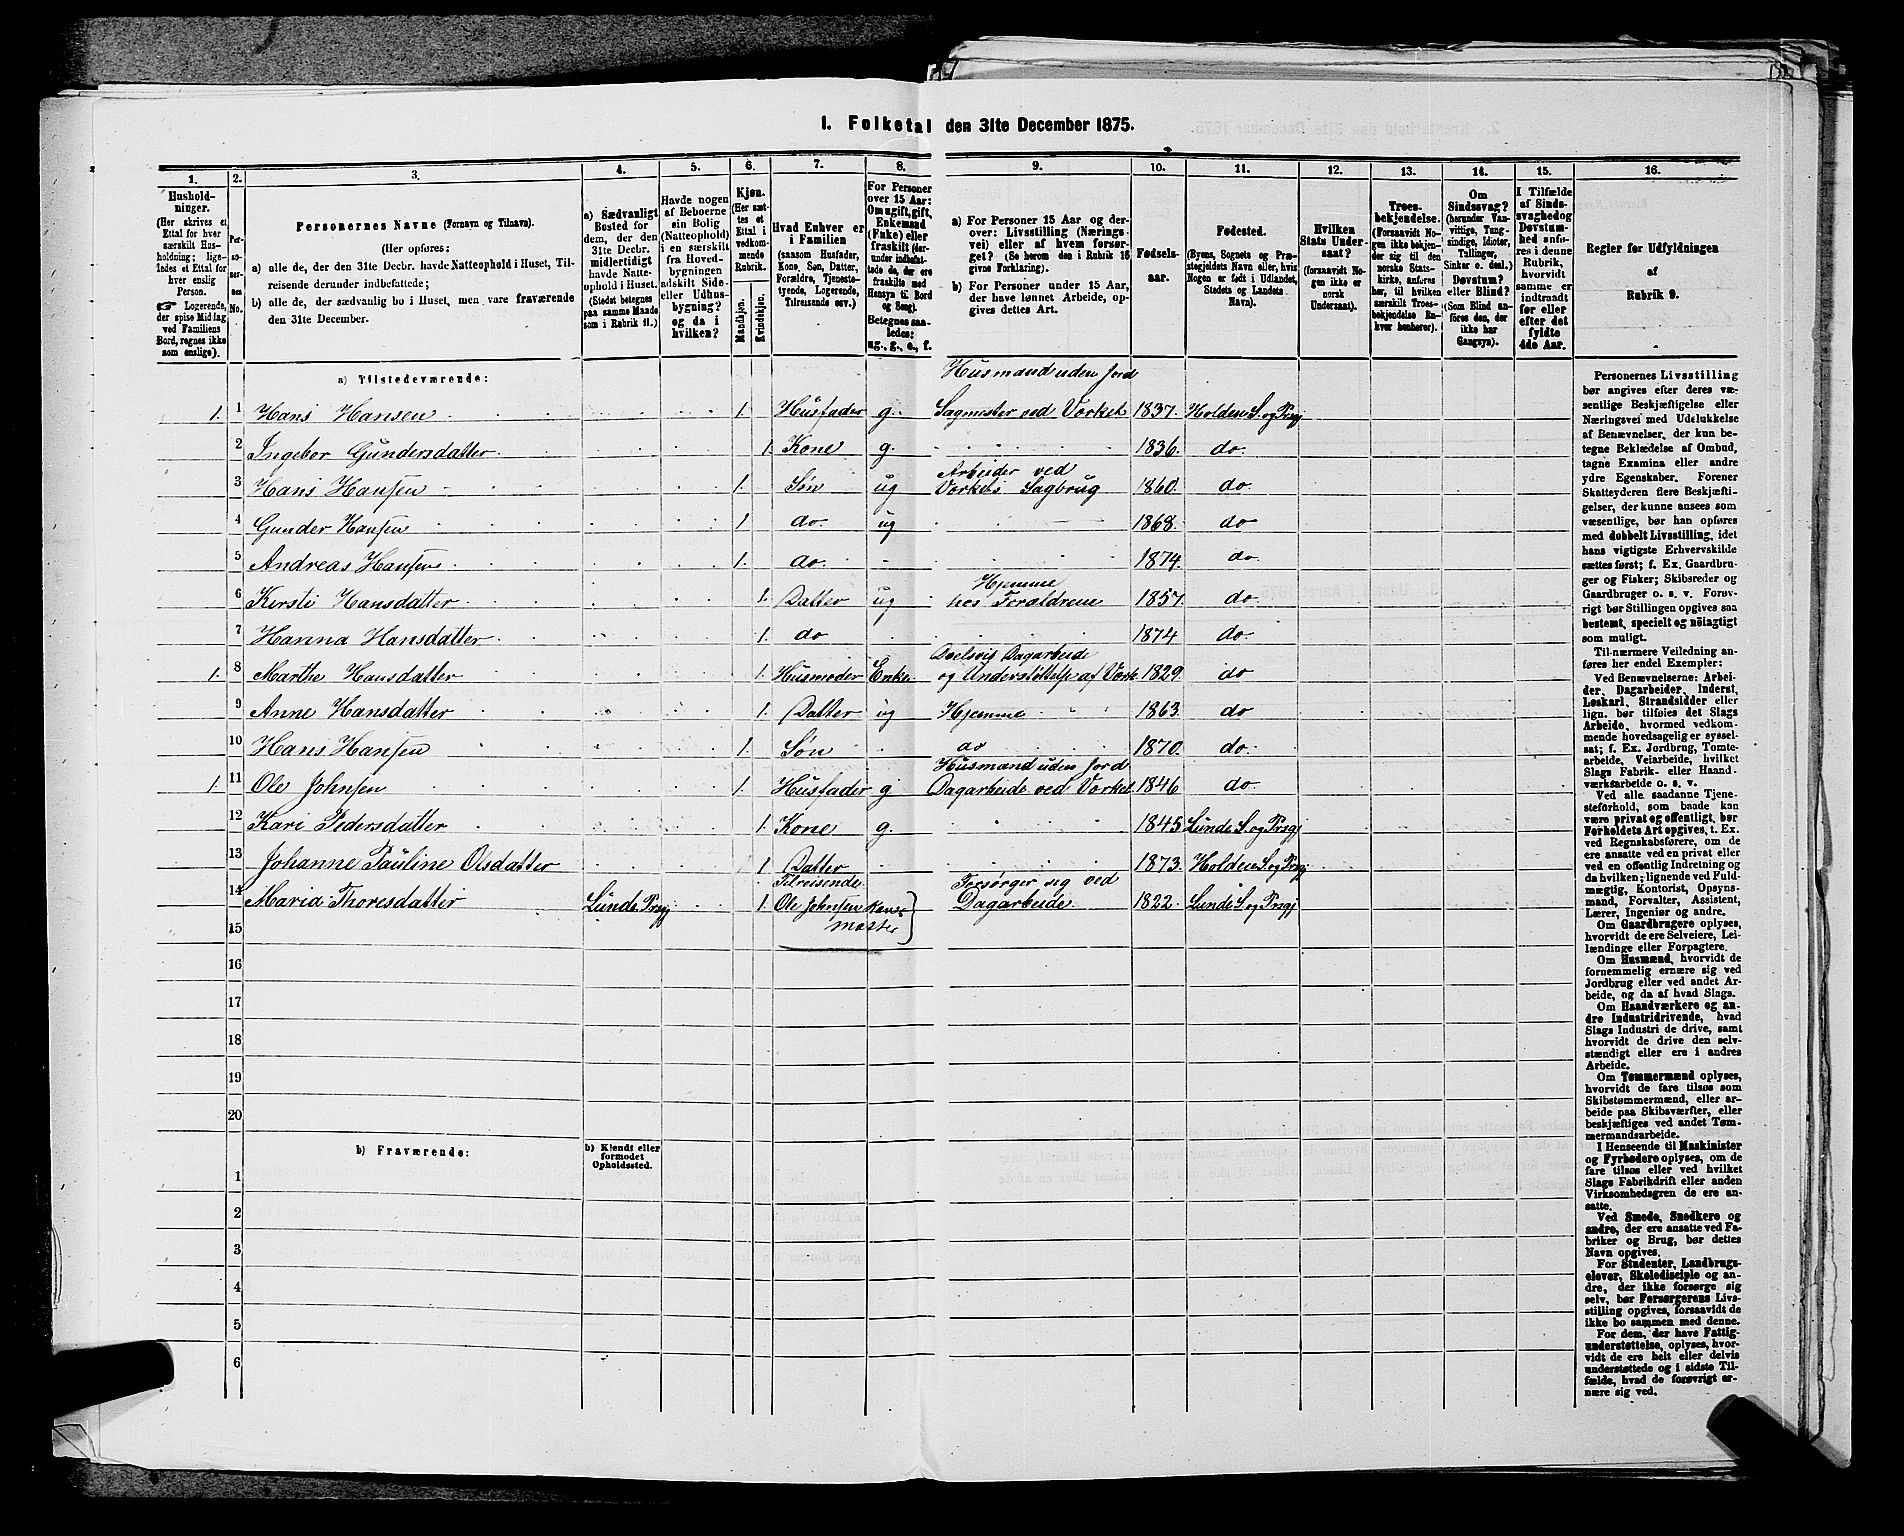 1. Folketal den 31te December 1875.
1. 2. 3. 4. 5. 6. 7. 8. 9. 10. 11. 12. 13. 14. 15. 16.
Hushold-
ninger.
(Her skrives et
Ettal for hver
særskilt Hus-
holdning; lige-
ledes et Ettal for
hver enslig
Person.
☞ Logerende,
der spise Midlag
ved Familiens
Bord, regnes ikke
som enslige).
Per-
so-
ner-
nes
No.
Personernes Navne (Fornavn og Tilnavn).
(Her opføres:
a) alle de, der den 31te Decbr. havde Natteophold i Huset, Til-
reisende derunder indbefattede;
b) alle de, der sædvanlig bo i Huset, men vare fraværende
den 31te December.
a) Sædvanligt
Bosted for
dem, der den
31te Decbr.
midlertidigt
havde Natte-
ophold i Huset.
(Stedet betegnes
paa samme Maade
som i Rubrik 11.)
Havde nogen
af Beboerne
sin Bolig
(Natteophold)
i en særskilt
fra Hoved-
bygningen
adskilt Side-
eller Udhus-
bygning?
og da i
hvilken?
Kjøn.
(Her sæt-
tes et
Ettal i
vedkom-
mende
Rubrik.
Mandkjøn.
Kvindekjøn.
Hvad Enhver er
i Familien
(saasom Husfader,
Kone, Søn, Datter,
Forældre, Tjeneste-
tyende, Logerende,
Tilreisende osv.)
For Personer
over 15 Aar:
Om ugift, gift,
Enkemand
(Enke) eller
fraskilt (der-
under indbefat-
tede de, der ere
fraskilte med
Hensyn til Bord
og Seng).
Betegnes saa-
ledes:
ug., g., e., f.
a) For Personer 15 Aar og der-
over: Livsstilling (Nærings-
vei) eller af hvem forsør-
get? (Se herom den i Rubrik 16
givne Forklaring).
b) For Personer under 15 Aar,
der have lønnet Arbeide, op-
gives dettes Art.
Fødsels-
aar.
Fødested.
(Byens, Sognets og Præ-
stegjeldets Navn eller, hvis
Nogen er født i Udlandet,
Stedets og Landets
Navn).
Hvilken
Stats Under-
saat?
(forsaavidt No-
gen ikke er
norsk
Undersaat).
Troes-
bekjendelse.
(Forsaavidt No-
gen ikke bekjen-
der sig til den
norske Stats-
kirke, anføres
her, til hvilken
særskilt Troes-
bekjendelse En-
hver henhører).
Om
Sindssvag?
(herunder Van-
vittige, Tung-
sindige, Idioter,
Tullinger,
Sinker o. desl.)
Døvstum?
eller Blind?
(Som Blind an-
føres den, der
ikke har
Gangsyn).
I Tilfælde
af Sinds-
svaghed og
Døvstum-
hed anfø-
res i denne
Rubrik,
hvorvidt
samme er
indtraadt
før eller
efter det
fyldte
4de Aar.
Regler for Udfyldningen
af
Rubrik 9.
a) Tilstedeværende:
Husmand uden Jord
1. 1 Hans Hansen 1. Husfader g. Sagmister ved Værket 1837. Holden S. og Prsgj
2 Ingebor Gundersdatter 1. Kone g. 1836. do.
Arbeider ved
3 Hans Hansen 1. Søn ug Værkets Sagbrug 1860. do.
4 Gunder Hansen 1 do. ug 1868. do
5 Andreas Hansen 1. do. 1874. do
Hjemme
6 Kirsti Hansdatter 1. Datter ug hos Foraldrene 1857. do.
7 Hanna Hansdatter 1. do 1874 do.
Deelsvis Dagarbeide
1. 8 Marthe Hansdatter 1. Husmoder Enke og Understøttelse af Værk. 1829. do
9 Anne Hansdatter 1. Datter ug Hjemme 1863. do
10 Hans Hansen 1. Søn do 1870. do.
Husmand uden Jord
1. 11 Ole Johnsen 1. Husfader g Dagarbeide ved Værket 1846 do.
12 Kari Pedersdatter 1. Kone g. 1845. Lunde S. og Prsgj
13 Johanne Pauline Olsdatter 1 Datter 1873. Holden S. og Prsgj
Tilreisende Forsørger sig ved
14 Maria Thoresdatter Lunde Prsgj 1. Ole Johnsen Kones Dagarbeide 1822 Lunde S. og Prsgj
15 Moster
16
17
18
19
20
b) Fraværende:
b) Kjendt eller
formodet
Opholdssted.
1
2
3
4
5
6
Personernes Livsstilling
bør angives efter deres væ-
sentlige Beskjæftigelse eller
Næringsvei med Udelukkelse
af Benævnelser, der kun be-
tegne Beklædelse af Ombud,
tagne Examina eller andre
ydre Egenskaber. Forener
Skatteyderen flere Beskjæfti-
gelser, der kunne ansees som
væsentlige, bør han opføres
med dobbelt Livsstilling, idet
hans vigtigste Erhvervskilde
sættes først; f. Ex. Gaardbru-
ger og Fisker; Skibsreder og
Gaardbruger o. s. v. Forøv-
rigt bør Stillingen opgives saa
bestemt, specielt og nöiagtigt
som muligt.
Til nærmere Veiledning an-
føres her endel Exempler:
Ved Benævnelserne: Arbei-
der, Dagarbeider, Inderst,
Løskarl, Strandsidder eller
lign. bør tilføies det Slags
Arbeide, hvormed vedkom-
mende hovedsagelig er syssel-
sat; f. Ex. Jordbrug, Tomte-
arbeide, Veiarbeide, hvilket
Slags Fabrik- eller Haand-
værksarbeide o. s. v.
Ved alle saadanne Tjene-
steforhold, som baade kan
være privat og offentlig, bør
Forholdets Art opgives, t. Ex.
ved Regnskabsførere, om de
ere ansatte ved en privat eller
ved en offentlig Indretning og
da hvilken; lignende ved Fuld-
mægtig, Kontorist, Opsyns-
mand, Forvalter, Assistent,
Lærer, Ingeniør og andre.
Om Gaardbrugere oplyses,
hvorvidt de ere Selveiere, Lei-
lændinge eller Forpagtere.
Om Husmænd, hvorvidt de
fornemmelig ernære sig ved
Jordbrug eller ved andet Ar-
beide, og da af hvad Slags.
Om Haandværkere og an-
dre Industridrivende, hvad
Slags Industri de drive, samt
hvorvidt de drive den selv-
stændigt eller ere i andres
Arbeide.
Om Tømmermænd oplyses,
hvorvidt de fare tilsøs som
Skibstømmermænd, eller ar-
beide paa Skibsværfter, eller
beskjæftiges ved andet Tøm-
mermandsarbeide.
I Henseende til Maskinister
og Fyrbødere oplyses, om de
fare tilsøs eller ved hvilket
Slags Fabrikdrift eller anden
Virksomhedsgren de ere an-
satte.
Ved Smede, Snedkere og
andre, der ere ansatte ved Fa-
briker og Brug, bør dettes
Navn opgives.
For Studenter, Landbrugs-
elever, Skoledisciple og an-
dre, der ikke forsørge sig
selv, bør Forsørgerens Livs-
stilling opgives, forsaavidt de
ikke bo sammen med denne.
For dem, der have Fattig-
understøttelse, oplyses, hvor-
vidt de ere helt eller delvis
understøttede og i sidste Til-
fælde, hvad de forøvrigt er-
nære sig ved.